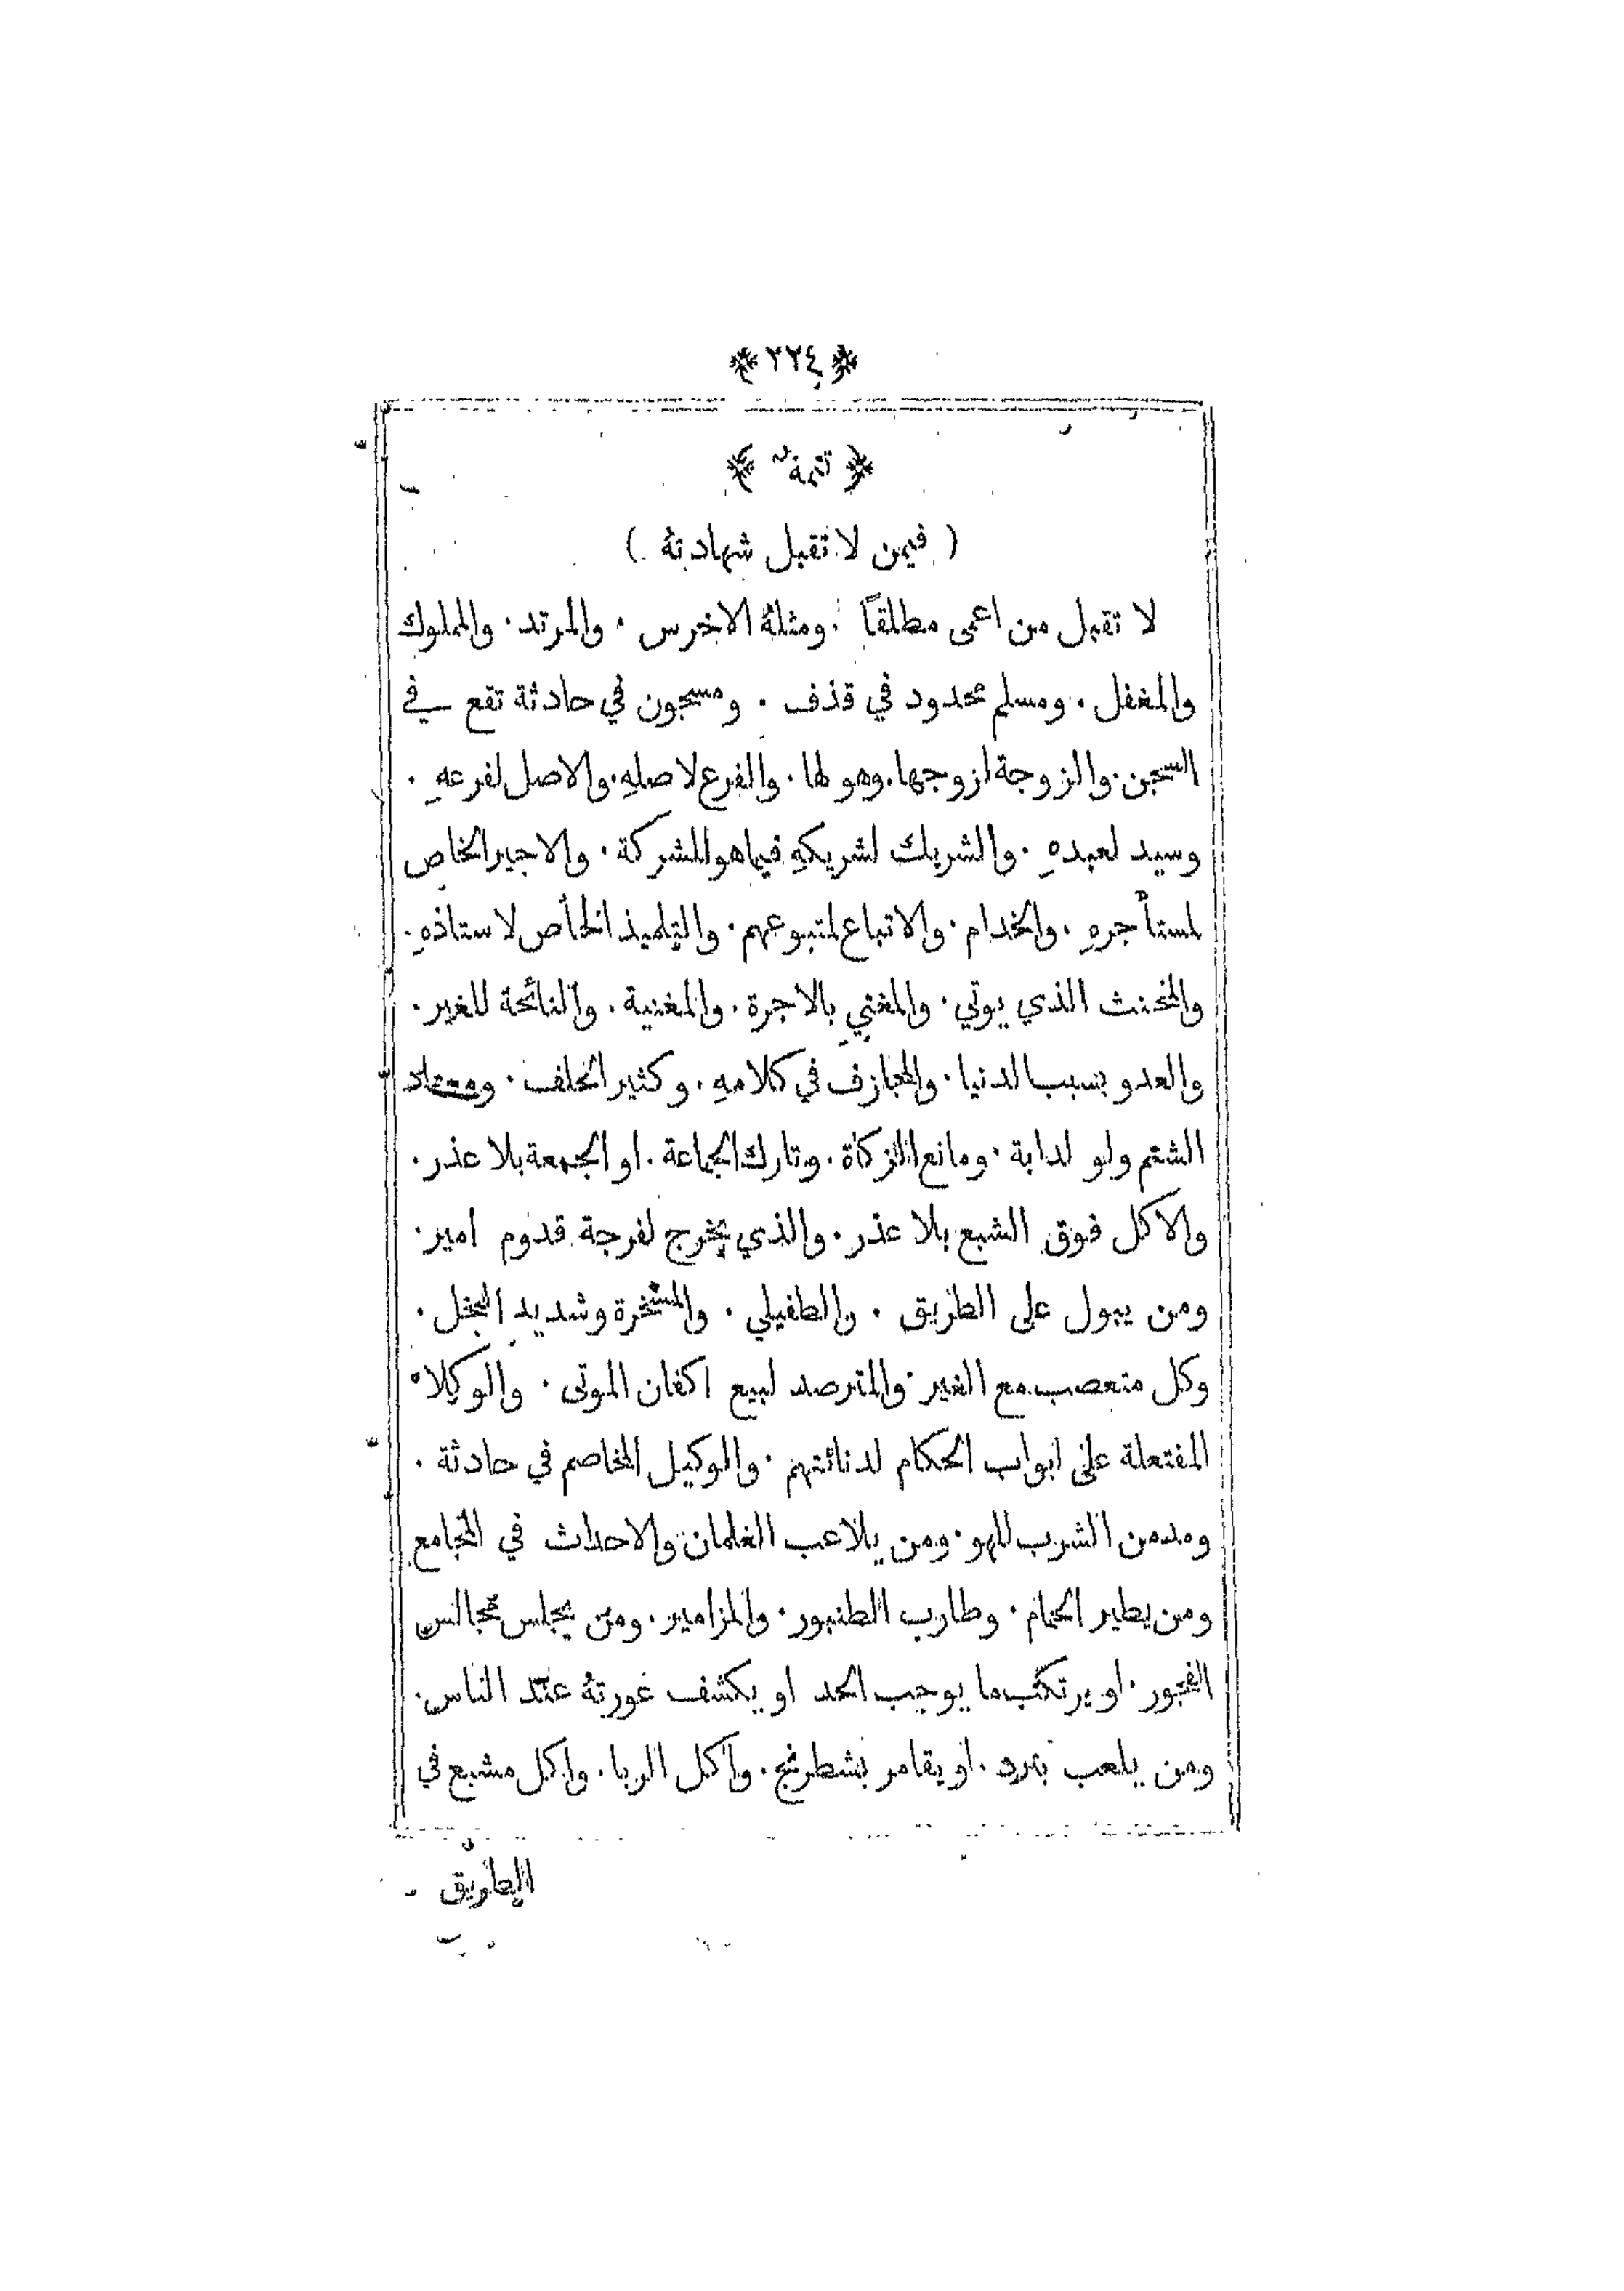 ﴿ ٢٢٤ ﴾
﴿ تتمة ﴾
( فيمن لا تقبل شهادتهُ )
لا تقبل من اعمى مطلقاً . ومثلهُ الاخرس . والمرتد . والمملوك
والمغفل . ومسلم محدود في قذف . ومسجون في حادثة تقع في
السجن . والزوجة لزوجها . وهو لها . والفرع لاصلهِ . والاصل لفرعهِ .
وسيد لعبدهِ . والشريك لشريكهِ فيما هو للشركة . والاجير الخاص
لمستأجرهِ . والخدام . والاتباع لمتبوعهم . والتلميذ الخاص لاستاذهِ .
والمخنث الذي يوتي . والمغني بالاجرة . والمغنية . والنائحة للغير .
والعدو بسبب الدنيا . والمجازف في كلامهِ . وكثير الحلف . ومعتاد
الشتم ولو لدابة . ومانع الزكاة . وتارك الجماعة . او الجمعة بلا عذر .
والاكل فوق الشبع بلا عذر . والذي يخرج لفرجة قدوم امير .
ومن يبول على الطريق . والطفيلي . والمسخرة وشديد البخل .
وكل متعصب مع الغير . والمترصد لبيع اكفان الموتى . والوكلاء
المفتعلة على ابواب الحكام لدنائتهم . والوكيل المخاصم في حادثة .
ومدمن الشرب للهو . ومن يلاعب الغلمان والاحداث في المجامع
ومن يطير الحمام . وطارب الطنبور . والمزامير . ومن يجلس مجالس
الفجور . او يرتكب ما يوجب الحد او يكشف عورتهُ عند الناس .
ومن يلعب بنرد . او يقامر بشطرنج . واكل الربا . واكل مشبع في
الطريق